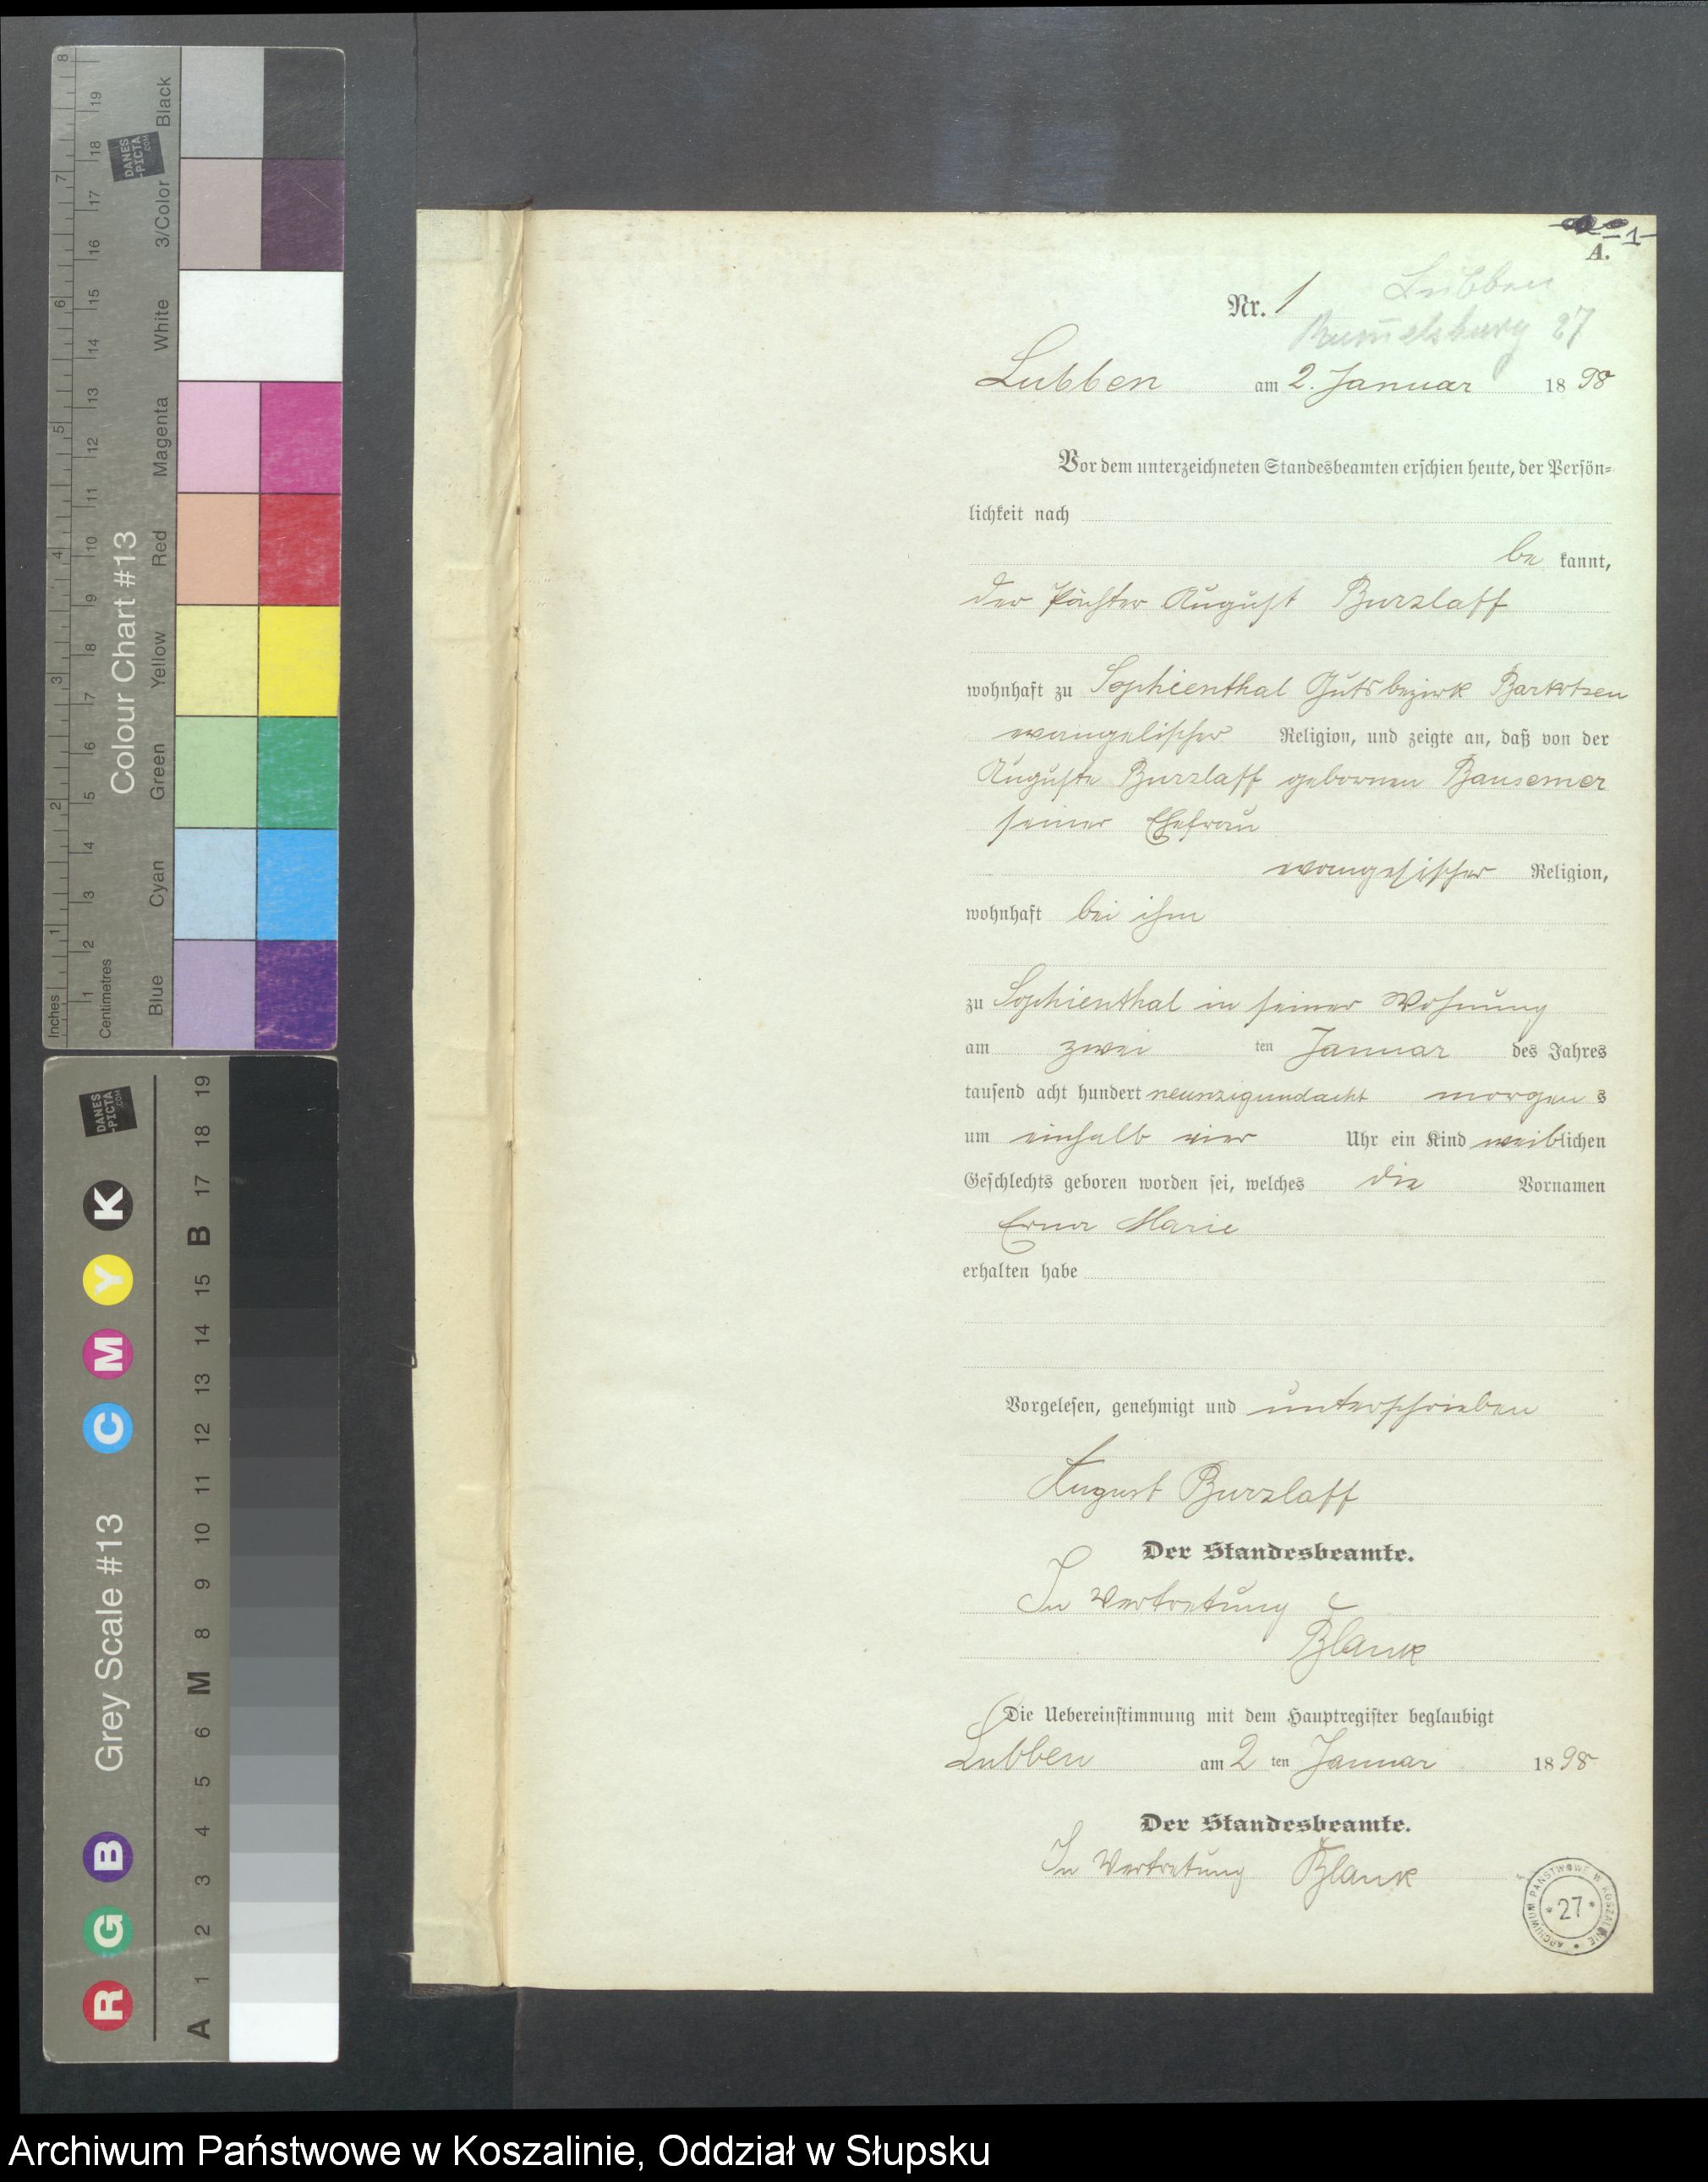 8
19
Black
DANES
-PICTA
.COM
18
7
17
3/Color
16
6
15
White
14
13
Magenta
5
12
11
Colour Chart #13
Red
4
10
9
Yellow
3
8
7
Green
6
2
5
Cyan
4
3
1
2
Blue
1
Inches
Centimetres
DANES
-PICTA
.COM
Grey Scale #13
R G B C M Y K
A 1 2 3 4 5 6 M 8 9 10 11 12 13 14 15 B 17 18 19
-1-
A.
Lubben
Nr. 1
Rummelsburg 27
Lubben am 2. Januar 1898
Vor dem unterzeichneten Standesbeamten erschien heute, der Persön=
lichkeit nach
be kannt,
der Pächter August Burzlaff
wohnhaft zu Sophienthal Gutsbezirk Bartotzen
evangelischer Religion, und zeigte an, daß von der
Auguste Burzlaff gebornen Bansemer
seiner Ehefrau
evangelischer Religion,
wohnhaft bei ihm
zu Sophienthal in seiner Wohnung
am zwei ten Januar des Jahres
tausend acht hundert neunzigundacht morgens
um einhalb vier Uhr ein Kind weiblichen
Geschlechts geboren worden sei, welches die Vornamen
Erna Marie
erhalten habe
Vorgelesen, genehmigt und unterschrieben
August Burzlaff
Der Standesbeamte.
In Vertretung
Blank
Die Uebereinstimmung mit dem Hauptregister beglaubigt
Lubben am 2 ten Januar 1898
Der Standesbeamte.
In Vertretung Blank
ARCHIWUM PAŃSTWOWE W KOSZALINIE
* 27 *
Archiwum Państwowe w Koszalinie, Oddział w Słupsku